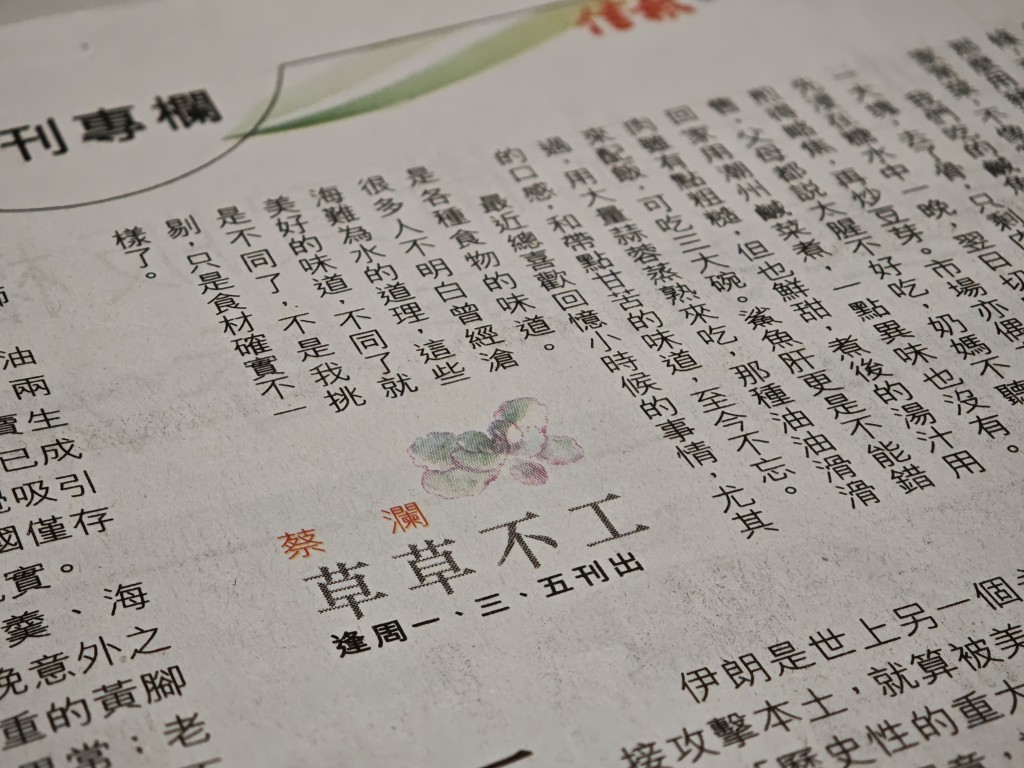 信報
刊專欄
一大塊，去了骨，只剩肉切
先浸在糖水中一晚，翌日
煎得略焦，再炒豆芽。市場亦
父母都說太腥不好吃，奶媽不聽
回家用潮州鹹菜煮，一點異味也沒有。
肉雖有點粗糙，但也鮮甜，煮後的湯汁用
來配飯，可吃三大碗。鯊魚肝更是不能錯
過，用大量蒜蓉蒸熟來吃，那種油油滑滑
的口感，和帶點甘苦的味道，至今不忘。
最近總喜歡回憶小時候的事情，尤其
是各種食物的味道。
很多人不明白曾經滄
海難為水的道理，這些
美好的味道，不同了就
是不同了，不是我挑
剔，只是食材確實不一
樣了。
蔡瀾
草草不工
逢周一、三、五刊出
油
兩
生
已成
吸引
國僅存
實。
羹、海
免意外之
重的黃腳
常：老
伊朗是世上另一個
接攻擊本土，就算被美
「歷史性的重大